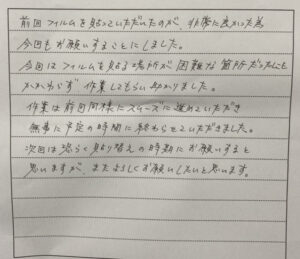 前回フィルムを貼っていただいたのが非常に良かった為
今回もお願いすることにしました。
今回はフィルムを貼る場所が困難な箇所だったにも
かかわらず作業してもらい助かりました。
作業は前回同様にスムーズに進めていただき
無事に予定の時間に終わらせていただきました。
次回は恐らく貼り替えの時期にお願いすると
思いますが、またよろしくお願いしたいと思います。